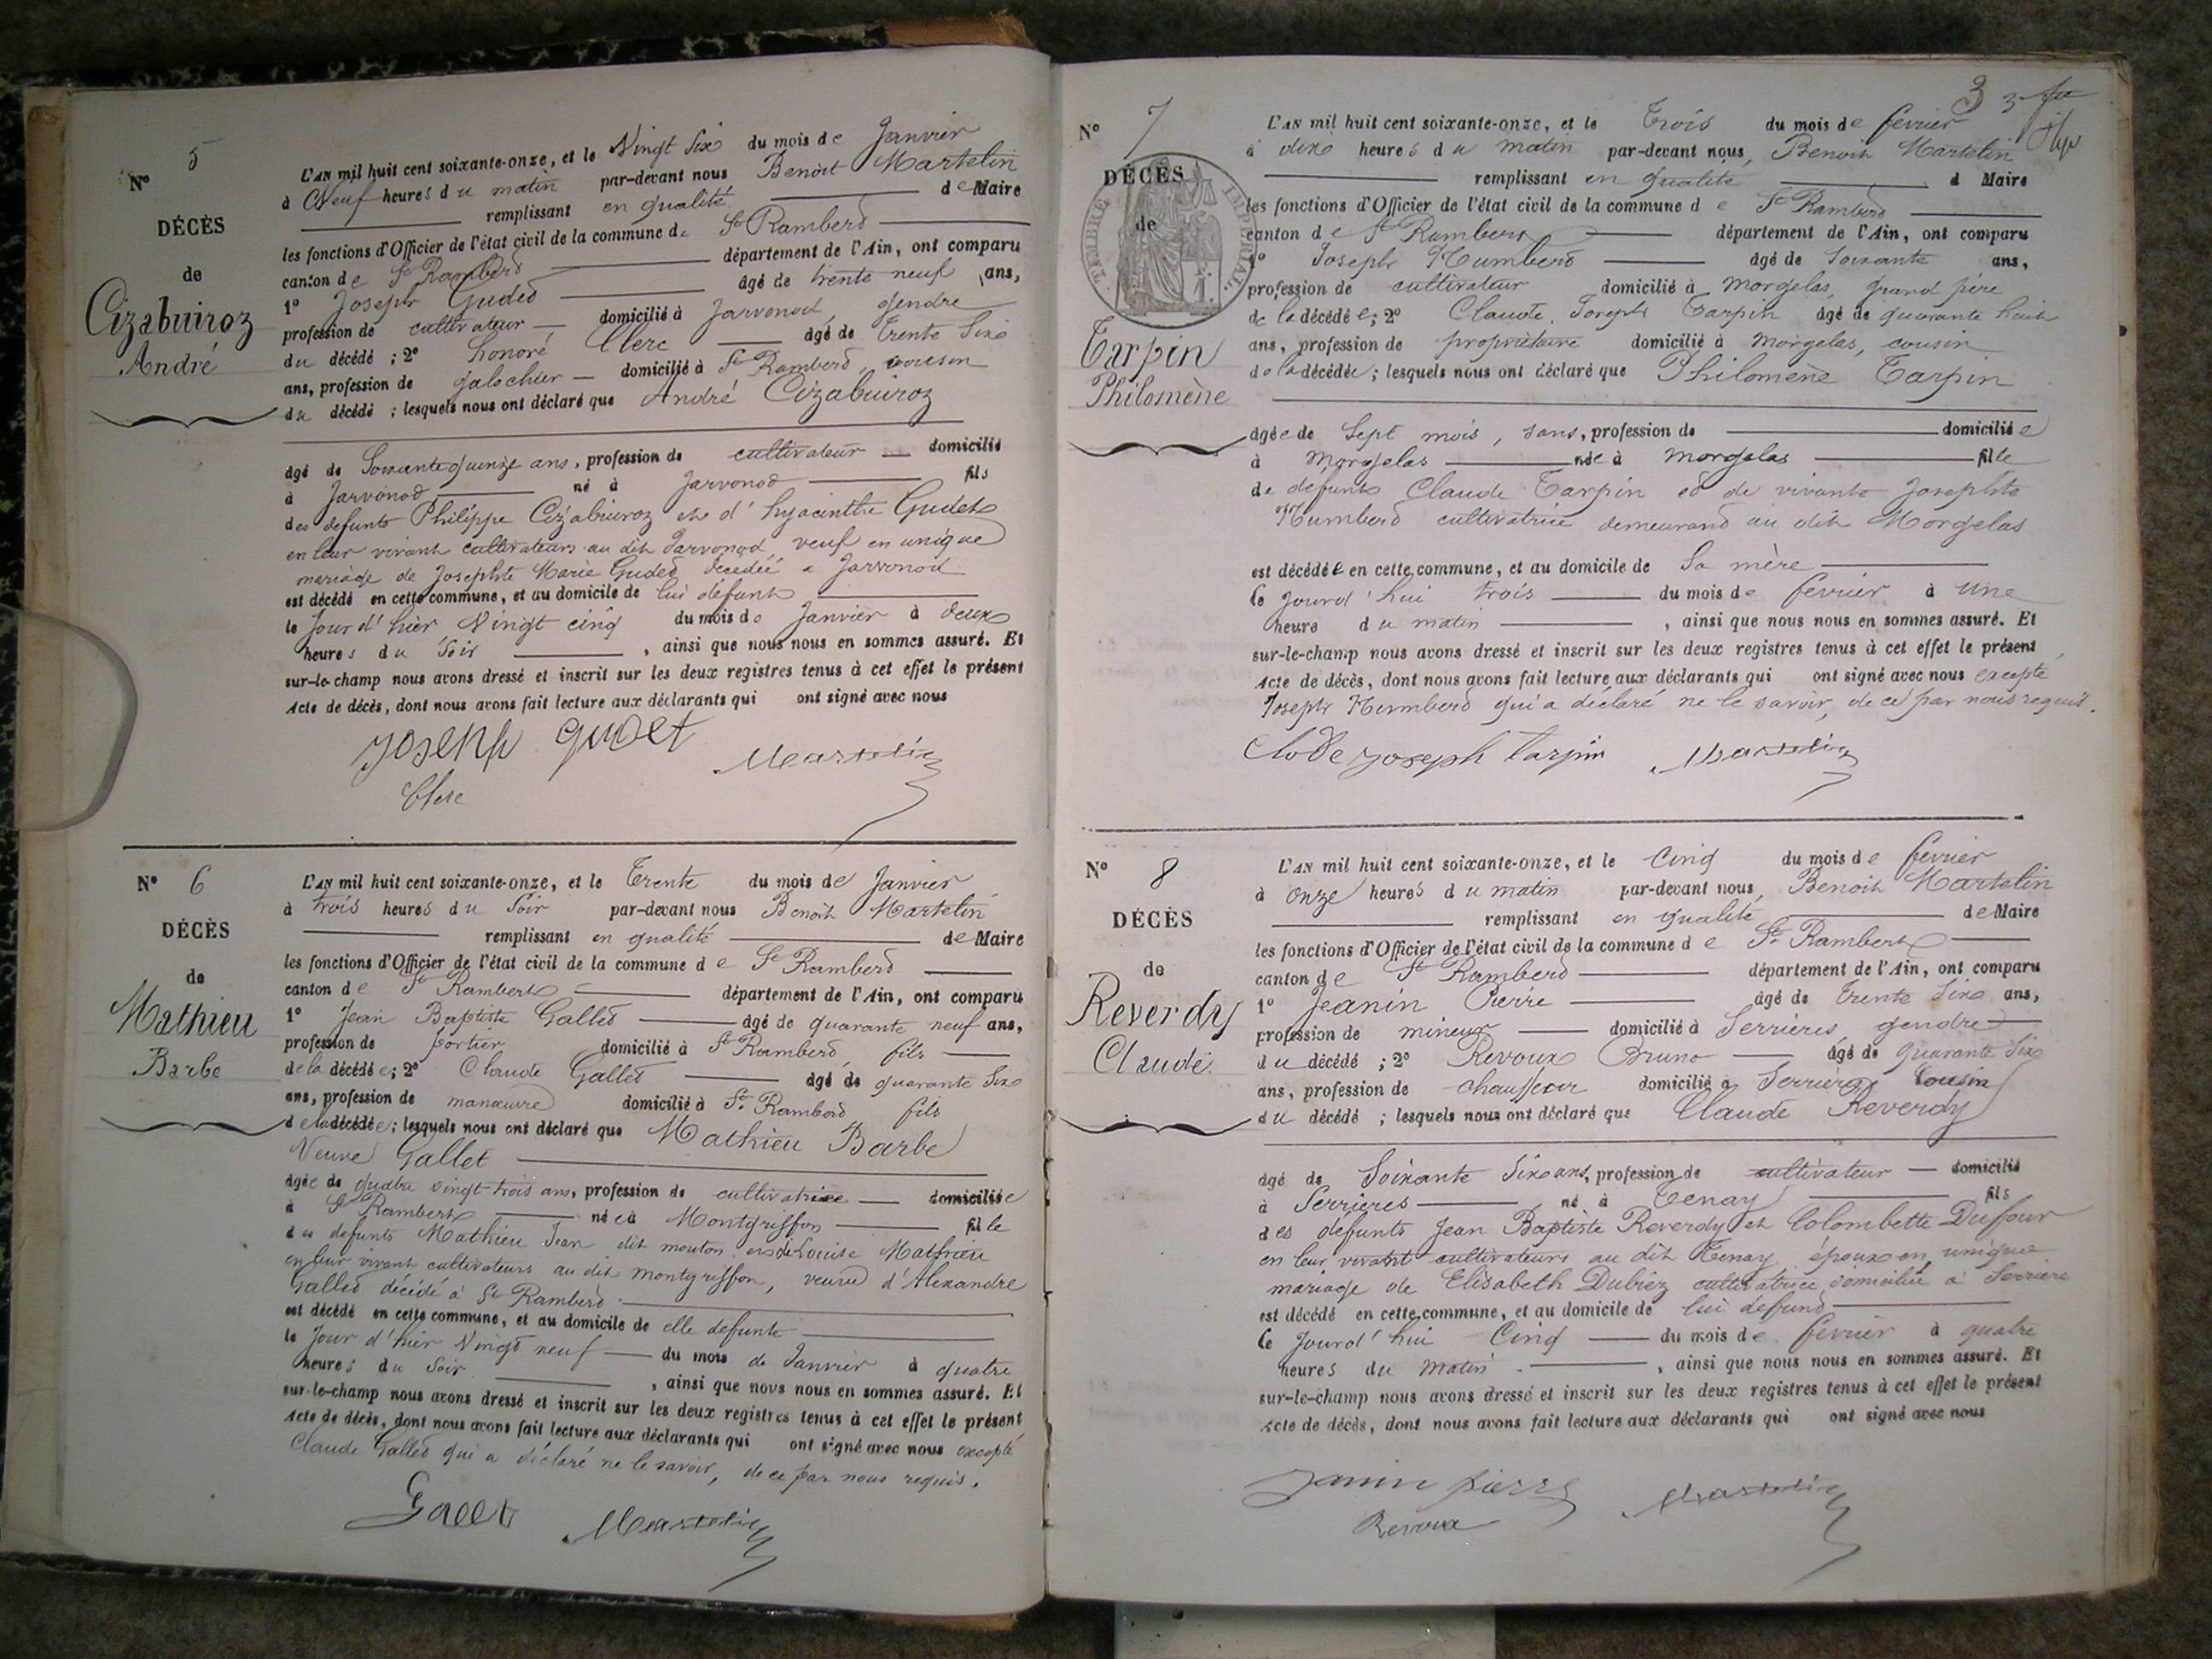 N° 5
DÉCÈS
de
Cizabuiroz
André
L'AN mil huit cent soixante-onze, et le Vingt Six du mois de Janvier
à Neuf heures du matin par-devant nous Benoit Martelin
remplissant en qualité de Maire
les fonctions d'Officier de l'état civil de la commune de St Rambert
canton de St Rambert département de l'Ain, ont comparu
1° Joseph Gudet âgé de trente neuf ans,
profession de cultivateur domicilié à Javornod, gendre
du décédé ; 2° honoré Clerc âgé de Trente Six
ans, profession de galochier domicilié à St Rambert, voisin
du décédé ; lesquels nous ont déclaré que André Cizabuiroz
âgé de Soixante quinze ans, profession de cultivateur domicilié
à Jarvonod né à Jarvonod fils
des defunts Philippe Cizabuiroz et d'hyacinthe Gudet
en leur vivant cultivateurs au dit Jarvonod, veuf en unique
mariage de Josephte Marie Gudet décedéé a Jarvonod
est décédé en cette commune, et au domicile de lui défunt
le Jour d'hier Vingt cinq du mois de Janvier à deux
heures du Soir , ainsi que nous nous en sommes assuré. Et
sur-le-champ nous avons dressé et inscrit sur les deux registres tenus à cet effet le présent
Acte de décès, dont nous avons fait lecture aux déclarants qui ont signé avec nous
Joseph gudet Martelin
Clerc
N° 6
DÉCÈS
de
Mathieu
Barbe
L'AN mil huit cent soixante-onze, et le Trente du mois de Janvier
à trois heures du Soir par-devant nous Benoit Martelin
remplissant en qualité de Maire
les fonctions d'Officier de l'état civil de la commune de St Rambert
canton de St Rambert département de l'Ain, ont comparu
1° Jean Baptiste Gallet âgé de quarante neuf ans,
profession de portier domicilié à St Rambert, fils
de la décédée; 2° Claude Gallet âgé de quarante Six
ans, profession de manœuvre domicilié à St Rambert fils
de la décédée; lesquels nous ont déclaré que Mathieu Barbe
Veuve Gallet
âgée de quatre vingt-trois ans, profession de cultivatrice domiciliée
à St Rambert née à Montgriffon fille
des defunts Mathieu Jean dit mouton et de Louise Mathieu
en leur vivant cultivateurs au dit montgriffon, veuve d'Alexandre
Gallet décédé à St Rambert
est décédé en cette commune, et au domicile de elle defunte
le Jour d'hier Vingt neuf du mois de Janvier à quatre
heures du Soir , ainsi que nous nous en sommes assuré. Et
sur-le-champ nous avons dressé et inscrit sur les deux registres tenus à cet effet le présent
Acte de décès, dont nous avons fait lecture aux déclarants qui ont signé avec nous excepté
Claude Gallet qui a déclaré ne le savoir, de ce par nous requis.
Gallet Martelin
3 3
N° 7
DÉCÈS
de
TIMBRE IMPÉRIAL
Tarpin
Philomène
L'AN mil huit cent soixante-onze, et le Trois du mois de fevrier
à dix heures du matin par-devant nous, Benoit Martelin
remplissant en qualité d Maire
les fonctions d'Officier de l'état civil de la commune de St Rambert
canton de St Rambert département de l'Ain, ont comparu
1° Joseph Humbert âgé de Soixante ans,
profession de cultivateur domicilié à Morgelas, grand père
de la décédée; 2° Claude Joseph Tarpin âgé de quarante huit
ans, profession de propriétaire domicilié à Morgelas, cousin
de la décédée; lesquels nous ont déclaré que Philomène Tarpin
âgée de Sept mois, sans, profession de domiciliée
à Morgelas née à Morgelas fille
de défunt Claude Tarpin et de vivante Josephte
Humbert cultivatrice demeurant au dit Morgelas
est décédée en cette commune, et au domicile de Sa mère
le Jourd'hui trois du mois de fevrier à une
heure du matin , ainsi que nous nous en sommes assuré. Et
sur-le-champ nous avons dressé et inscrit sur les deux registres tenus à cet effet le présent
Acte de décès, dont nous avons fait lecture aux déclarants qui ont signé avec nous excepté
Joseph Humbert qui a déclaré ne le savoir, de ce par nous requis.
Clode joseph tarpin Martelin
N° 8
DÉCÈS
de
Reverdy
Claude
L'AN mil huit cent soixante-onze, et le Cinq du mois de fevrier
à onze heures du matin par-devant nous, Benoit Martelin
remplissant en qualité de Maire
les fonctions d'Officier de l'état civil de la commune de St Rambert
canton de St Rambert département de l'Ain, ont comparu
1° Jeanin Pierre âgé de Trente Six ans,
profession de mineur domicilié à Serrières, gendre
du décédé ; 2° Revoux Bruno âgé de quarante Six
ans, profession de chauffeur domicilié à Serrières Cousin
du décédé ; lesquels nous ont déclaré que Claude Reverdy
âgé de Soixante Six ans, profession de cultivateur domicilié
à Serrieres né à Tenay fils
des défunts Jean Baptiste Reverdy et Colombette Dufour
en leur vivant cultivateurs au dit Tenay, époux en unique
mariage de Elisabeth Dubiez cultivatrice domiciliée à Serriere
est décédé en cette commune, et au domicile de lui defunt
le Jourd'hui Cinq du mois de fevrier à quatre
heures du matin , ainsi que nous nous en sommes assuré. Et
sur-le-champ nous avons dressé et inscrit sur les deux registres tenus à cet effet le présent
Acte de décès, dont nous avons fait lecture aux déclarants qui ont signé avec nous
Janin pierre Martelin
Revoux